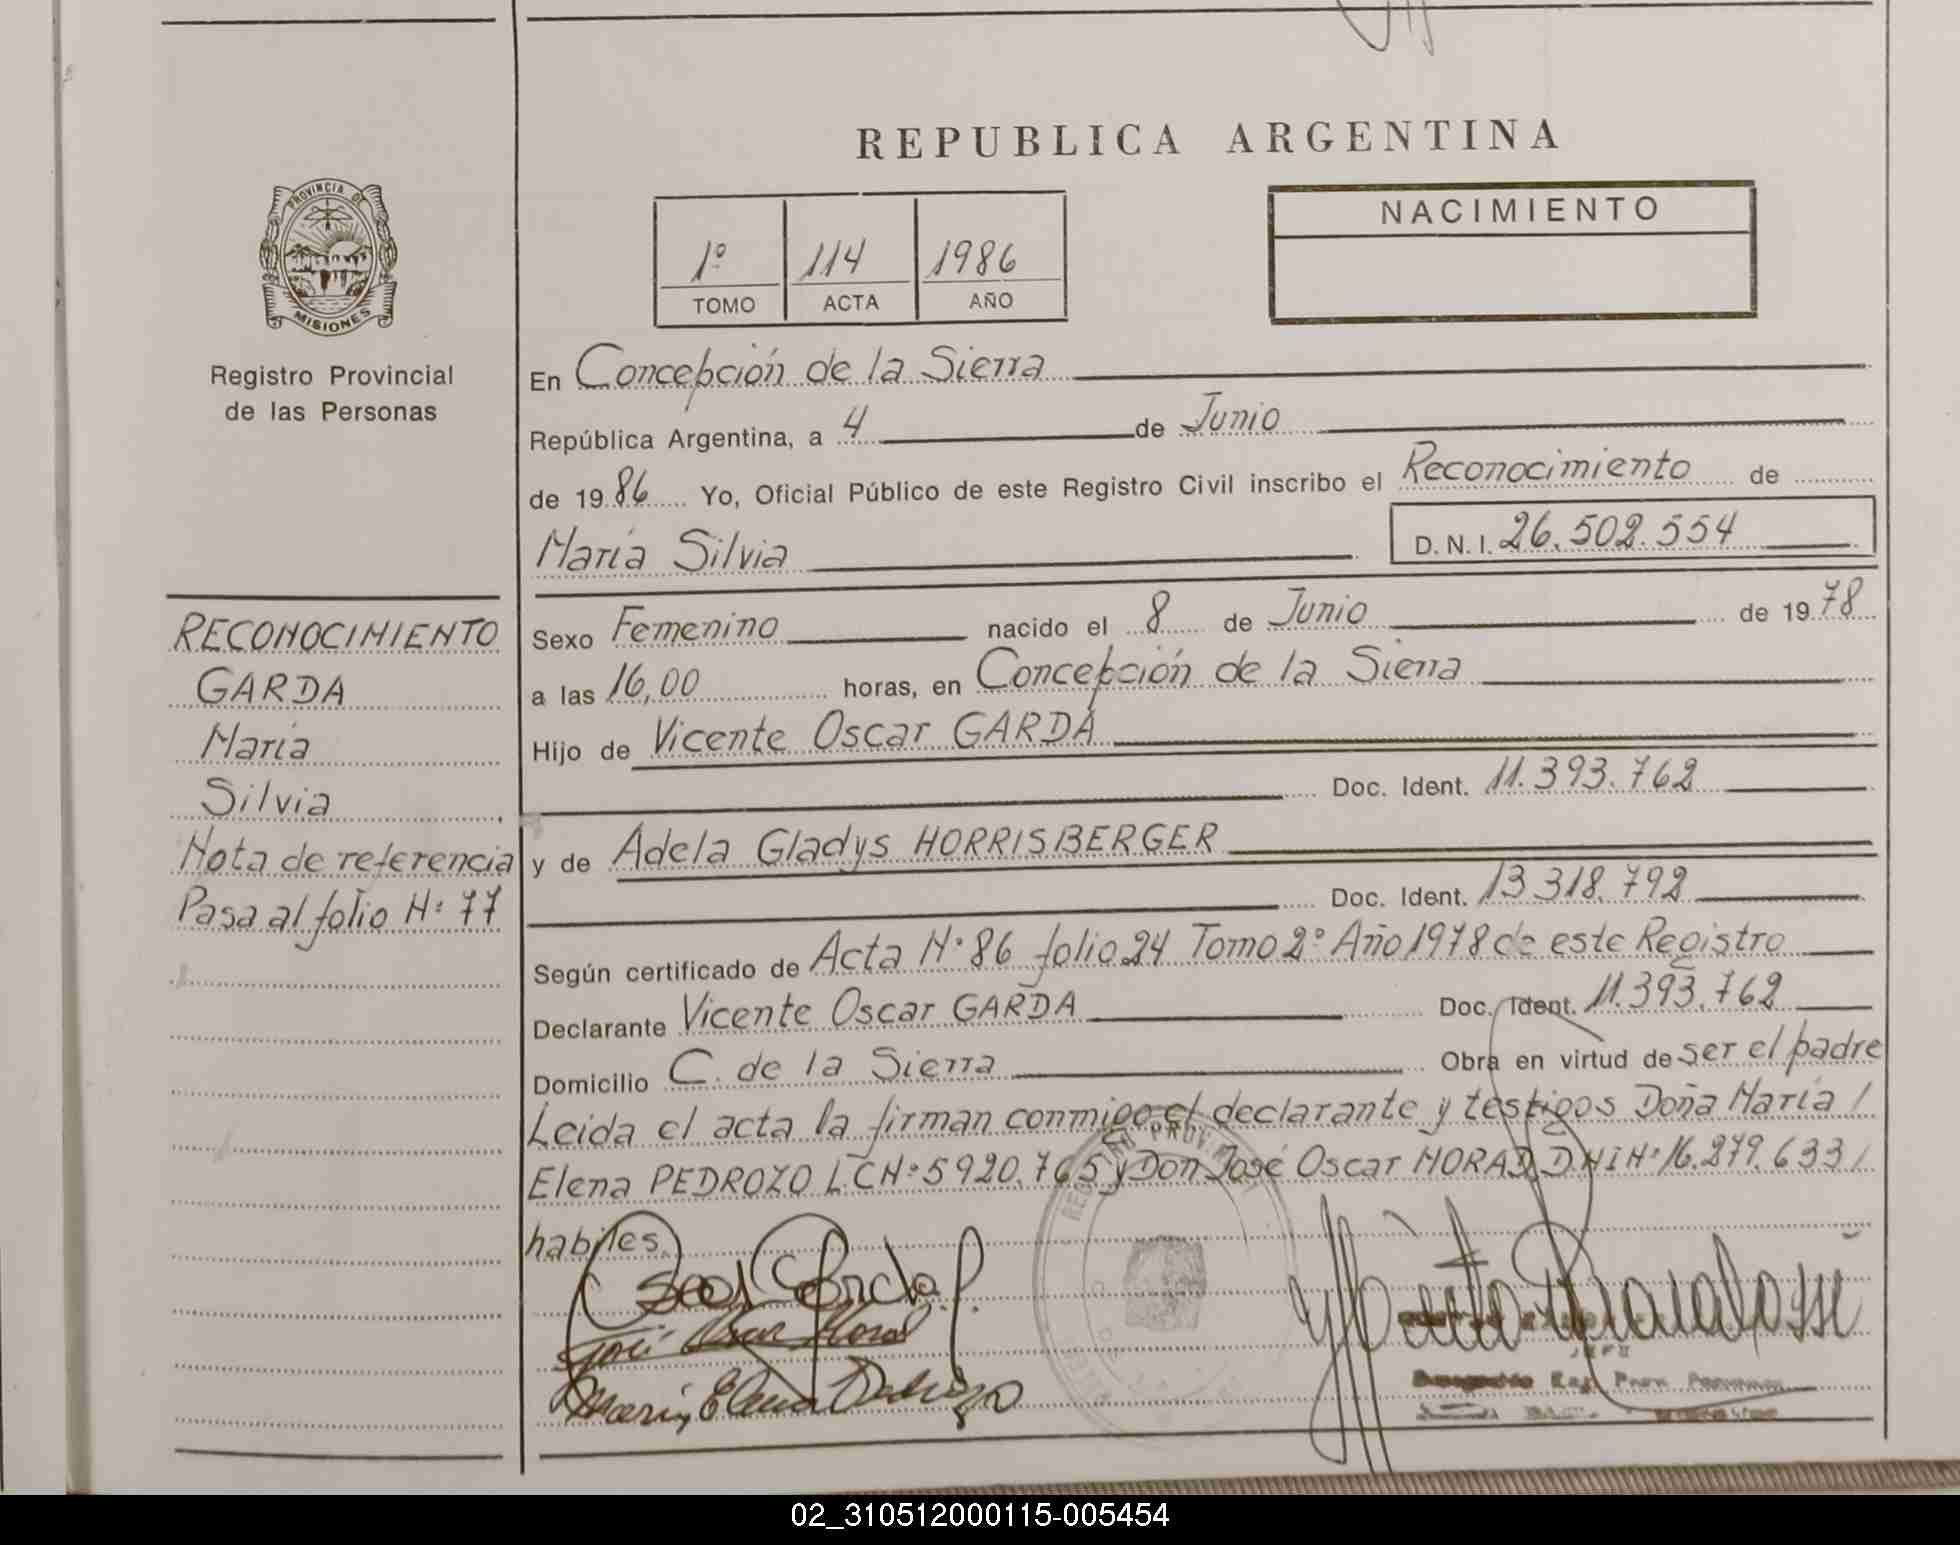 REPUBLICA ARGENTINA
PROVINCIA DE
MISIONES
Registro Provincial
de las Personas
1º 114 1986
TOMO ACTA AÑO
NACIMIENTO
En Concepción de la Sierra
República Argentina, a 4 de Junio
de 1986 Yo, Oficial Público de este Registro Civil inscribo el Reconocimiento de
María Silvia D.N.I. 26.502.554
RECONOCIMIENTO
GARDA
María
Silvia
Nota de referencia
Pasa al folio Nº 77
Sexo Femenino nacido el 8 de Junio de 1978
a las 16,00 horas, en Concepción de la Sierra
Hijo de Vicente Oscar GARDA
Doc. Ident. 11.393.762
y de Adela Gladys HORRISBERGER
Doc. Ident. 13 318.792
Según certificado de Acta Nº 86 folio 24 Tomo 2º Año 1978 de este Registro
Declarante Vicente Oscar GARDA Doc. Ident. 11.393.762
Domicilio C. de la Sierra Obra en virtud de ser el padre
Leida el acta la firman conmigo el declarante y testigos Doña María /
Elena PEDROZO L.C Nº 5920.765 y Don José Oscar MORAD DNI Nº 16.279.633 /
habiles.
José Oscar Morad
María Elena Pedrozo
JEFE
02_310512000115-005454